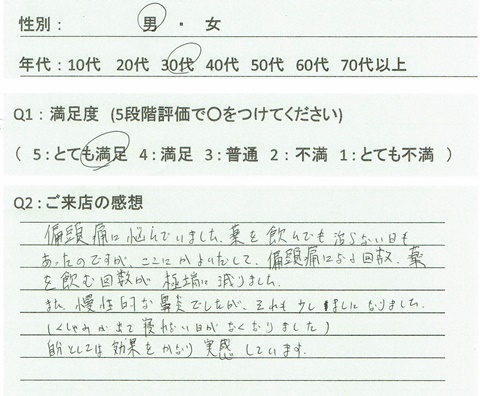 性別： 男 ・ 女
年代：10代 20代 30代 40代 50代 60代 70代以上
Q1：満足度 (5段階評価で○をつけてください)
( 5：とても満足 4：満足 3：普通 2：不満 1：とても不満 )
Q2：ご来店の感想
偏頭痛に悩んでいました。薬を飲んでも治らない日も
あったのですが、ここにかよいだして、偏頭痛になる回数、薬
を飲む回数が極端に減りました。
また、慢性的な鼻炎でしたが、それも少しましになりました。
(くしゃみが出て寝れない日がなくなりました)
自分としては効果をかなり実感しています。